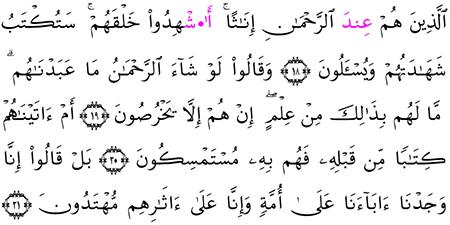 الَّذِينَ هُمْ عِندَ الرَّحْمَٰنِ إِنَٰثًا ۚ أَ۟شْهِدُوا۟ خَلْقَهُمْ ۚ سَتُكْتَبُ
شَهَٰدَتُهُمْ وَيُسْـَٔلُونَ ﴿١٨﴾ وَقَالُوا۟ لَوْ شَآءَ الرَّحْمَٰنُ مَا عَبَدْنَٰهُم ۗ
مَّا لَهُم بِذَٰلِكَ مِنْ عِلْمٍ ۖ إِنْ هُمْ إِلَّا يَخْرُصُونَ ﴿١٩﴾ أَمْ ءَاتَيْنَٰهُمْ
كِتَٰبًا مِّن قَبْلِهِۦ فَهُم بِهِۦ مُسْتَمْسِكُونَ ﴿٢٠﴾ بَلْ قَالُوٓا۟ إِنَّا
وَجَدْنَآ ءَابَآءَنَا عَلَىٰٓ أُمَّةٍ وَإِنَّا عَلَىٰٓ ءَاثَٰرِهِم مُّهْتَدُونَ ﴿٢١﴾